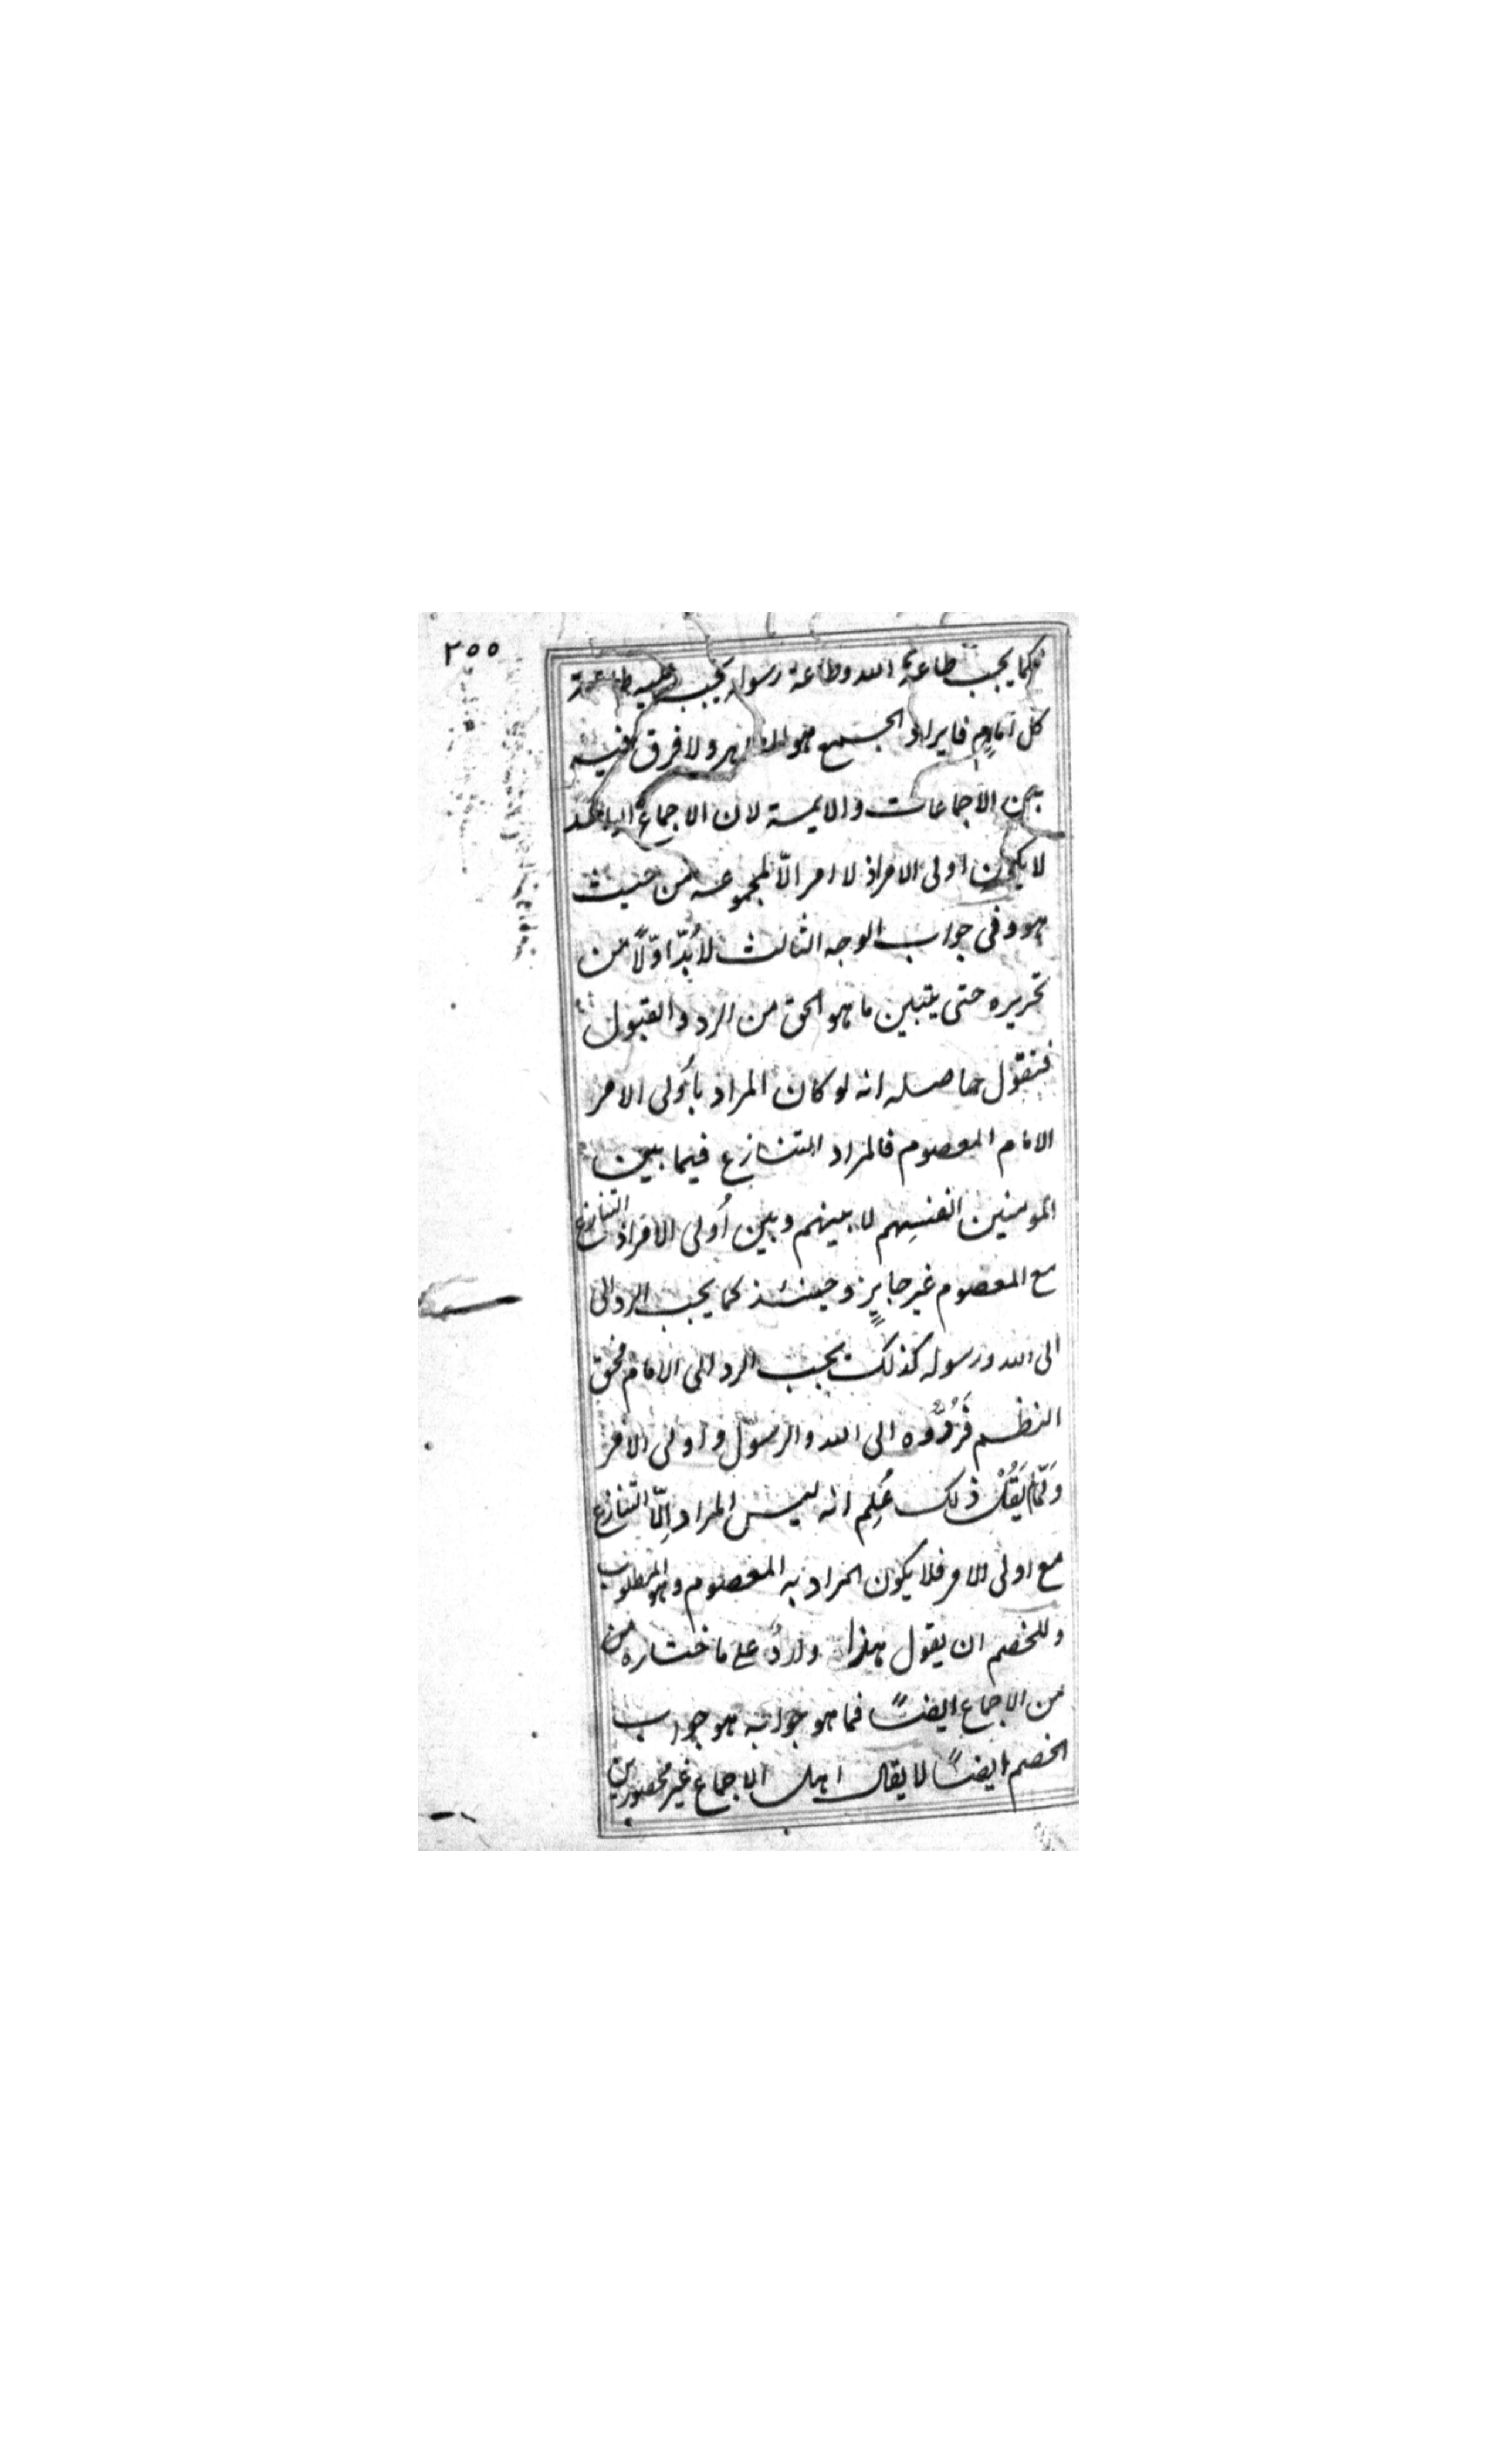 ٢٥٥
فكما يجب طاعة الله وطاعة رسوله يجب عليه طاعة
كل امام فايراد الجمع هو الظاهر ولا فرق فيه
بين الاجماعات والايمة لان الاجماع الواحد
لا يكون اولى الامر اذ لا امر الّا لمجموعه من حيث
هو وفى جواب الوجه الثالث لا بُدّ اوّلاً من
تحريره حتى يتبين ما هو الحق من الرد والقبول
فنقول حاصله انه لو كان المراد بأولى الامر
الامام المعصوم فالمراد التنازع فيما بين
المومنين انفسِهم لا بينهم وبين أولى الامر اذ التنازع
مع المعصوم غير جايزٍ وحينئذ كما يجب الرد الى
الى الله ورسوله كذلك يجب الرد الى الامام فحق
النظم فَرُدُّوه الى الله والرسول و اولى الامر
وَلَمّا لم يَقُلْ ذلك عُلِم انه ليس المراد اِلّا التنازع
مع اولى الامر فلا يكون المراد به المعصوم وهو المطلوب
وللخصم ان يقول هذا واردٌ على ما اختاره من
من الاجماع ايضاً فما هو جوابه هو جواب
الخصم ايضاً لا يقال اهل الاجماع غير محصورين